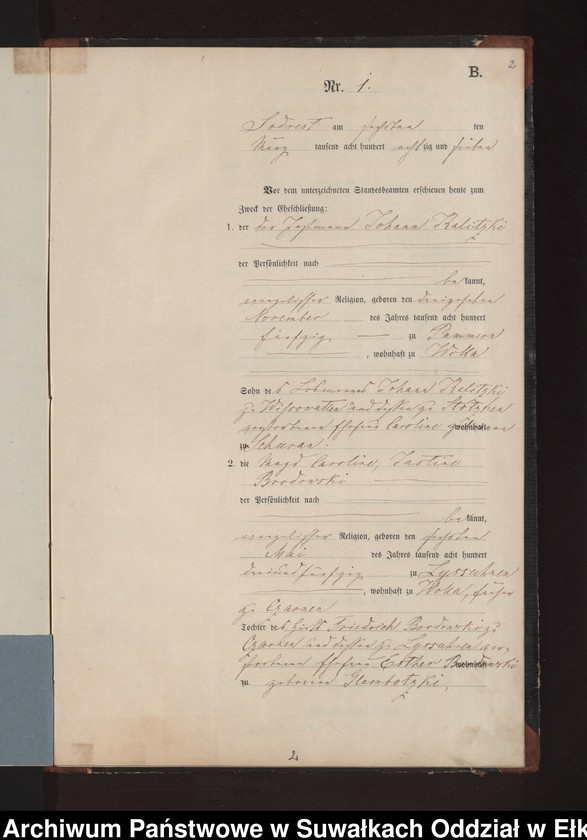 B.
2
Nr. 1.
am sechsten ten
März tausend acht hundert achtzig und sieben
Vor dem unterzeichneten Standesbeamten erschienen heute zum
Zweck der Eheschließung:
1. der der Johann Kalitzki
der Persönlichkeit nach
bekannt,
evangelischer Religion, geboren den dreizehnten
November des Jahres tausend acht hundert
fünfzig zu
, wohnhaft zu Wolla
Sohn des Johann Kalitzki
zu und dessen zu
verstorbenen Ehefrau Caroline geborenen wohnhaft
zu
2. die Magd Caroline, Justine
Brodowski
der Persönlichkeit nach
bekannt,
evangelischer Religion, geboren den sechsten
Mai des Jahres tausend acht hundert
dreiundfünfzig zu Lyssuhnen
, wohnhaft zu Wolla, früher
zu Czarnen
Tochter des Friedrich Brodowski zu
Czarnen und dessen zu Lyssuhnen ver-
storbenen Ehefrau Esther Brodowski wohnhaft
zu geborenen Glembotzki,
2
Archiwum Państwowe w Suwałkach Oddział w Ełk